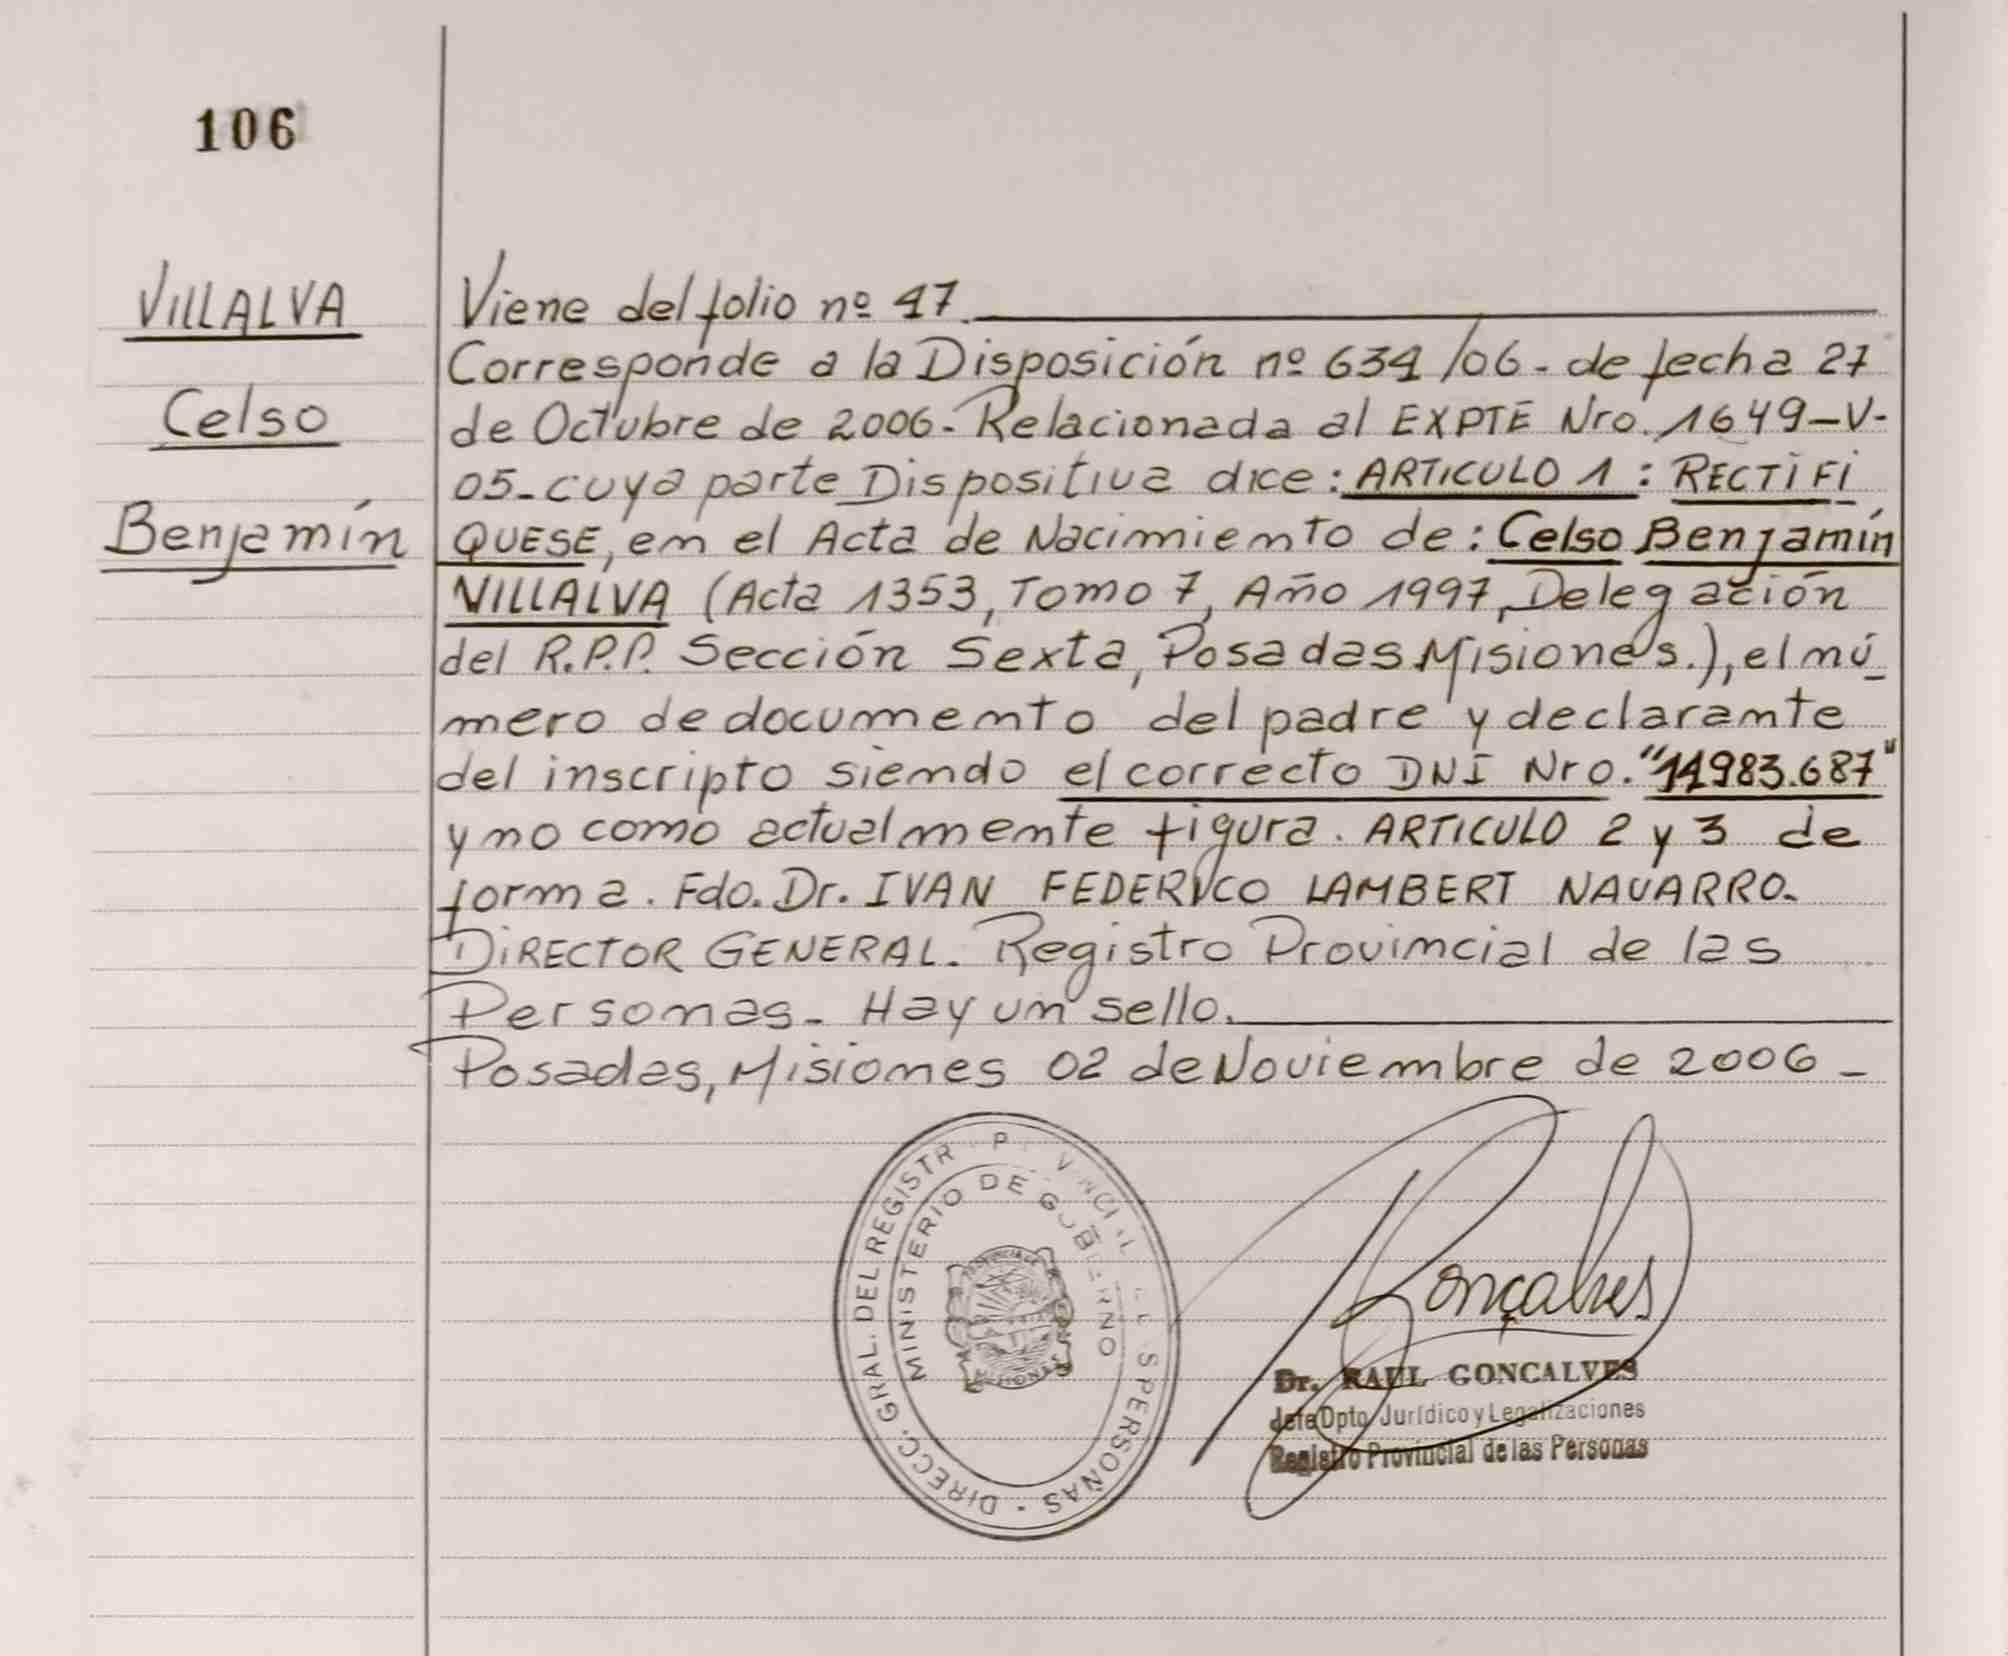 106
VILLALVA
Celso
Benjamín
Viene del folio nº 47.
Corresponde a la Disposición nº 634/06- de fecha 27
de Octubre de 2006- Relacionada al EXPTE Nro. 1649-V-
05- cuya parte Dispositiva dice: ARTICULO 1: RECTIFI
QUESE, en el Acta de Nacimiento de: Celso Benjamín
VILLALVA (Acta 1353, Tomo 7, Año 1997, Delegación
del R.P.P. Sección Sexta, Posadas Misiones.), el nú_
mero de documento del padre y declarante
del inscripto siendo el correcto DNI Nro. "14983.687"
y no como actualmente figura. ARTICULO 2 y 3 de
forma. Fdo. Dr. IVAN FEDERICO LAMBERT NAVARRO.
DIRECTOR GENERAL. Registro Provincial de las
Personas- Hay un sello.
Posadas, Misiones 02 de Noviembre de 2006-
DIRECC. GRAL. DEL REGISTR PERSONAS
MINISTERIO DE GOBIERNO
Gonçalves
Dr. RAUL GONCALVES
Jefe Dpto Jurídico y Legalizaciones
Registro Provincial de las Personas